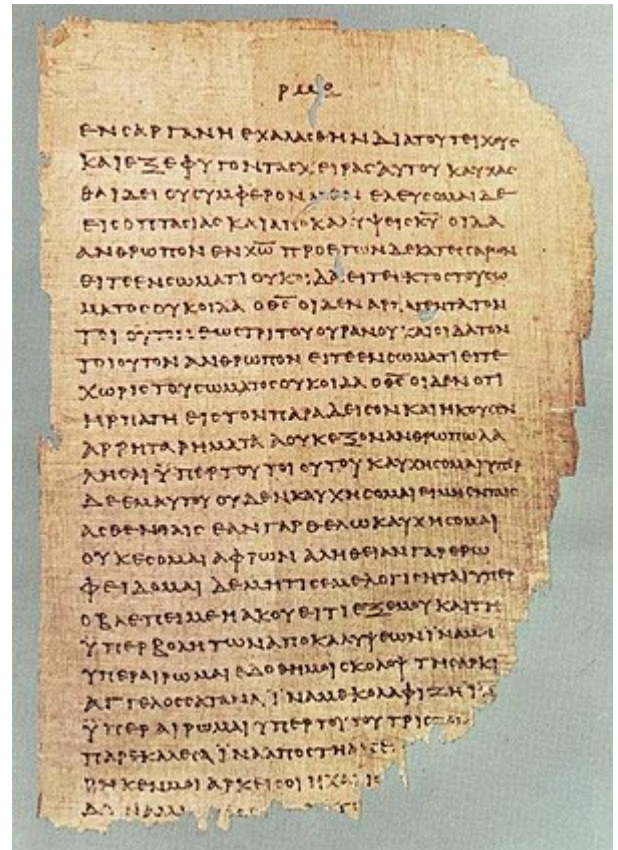 ΡΜΘ
ΕΝ ΣΑΡΓΑΝΗ ΕΧΑΛΑΣΘΗΝ ΔΙΑ ΤΟΥ ΤΕΙΧΟΥΣ
ΚΑΙ ΕΞΕΦΥΓΟΝ ΤΑΣ ΧΕΙΡΑΣ ΑΥΤΟΥ ΚΑΥΧΑΣ
ΘΑΙ ΔΕΙ ΟΥ ΣΥΜΦΕΡΟΝ ΜΕΝ ΕΛΕΥΣΟΜΑΙ ΔΕ
ΕΙΣ ΟΠΤΑΣΙΑΣ ΚΑΙ ΑΠΟΚΑΛΥΨΕΙΣ ΚΥ ΟΙΔΑ
ΑΝΘΡΩΠΟΝ ΕΝ ΧΩ ΠΡΟ ΕΤΩΝ ΔΕΚΑΤΕΣΣΑΡΩΝ
ΕΙΤΕ ΕΝ ΣΩΜΑΤΙ ΟΥΚ ΟΙΔΑ ΕΙΤΕ ΕΚΤΟΣ ΤΟΥ ΣΩ
ΜΑΤΟΣ ΟΥΚ ΟΙΔΑ Ο ΘΣ ΟΙΔΕΝ ΑΡΠΑΓΕΝΤΑ ΤΟΝ
ΤΟΙΟΥΤΟΝ ΕΩΣ ΤΡΙΤΟΥ ΟΥΡΑΝΟΥ ΚΑΙ ΟΙΔΑ ΤΟΝ
ΤΟΙΟΥΤΟΝ ΑΝΘΡΩΠΟΝ ΕΙΤΕ ΕΝ ΣΩΜΑΤΙ ΕΙΤΕ
ΧΩΡΙΣ ΤΟΥ ΣΩΜΑΤΟΣ ΟΥΚ ΟΙΔΑ Ο ΘΣ ΟΙΔΕΝ ΟΤΙ
ΗΡΠΑΓΗ ΕΙΣ ΤΟΝ ΠΑΡΑΔΕΙΣΟΝ ΚΑΙ ΗΚΟΥΣΕΝ
ΑΡΡΗΤΑ ΡΗΜΑΤΑ Α ΟΥΚ ΕΞΟΝ ΑΝΘΡΩΠΩ ΛΑ
ΛΗΣΑΙ ΫΠΕΡ ΤΟΥ ΤΟΙΟΥΤΟΥ ΚΑΥΧΗΣΟΜΑΙ ΥΠΕΡ
ΔΕ ΕΜΑΥΤΟΥ ΟΥΔΕΝ ΚΑΥΧΗΣΟΜΑΙ ΕΙ ΜΗ ΕΝ ΤΑΙΣ
ΑΣΘΕΝΕΙΑΙΣ ΕΑΝ ΓΑΡ ΘΕΛΩ ΚΑΥΧΗΣΟΜΑΙ
ΟΥΚ ΕΣΟΜΑΙ ΑΦΡΩΝ ΑΛΗΘΕΙΑΝ ΓΑΡ ΕΡΩ
ΦΕΙΔΟΜΑΙ ΔΕ ΜΗ ΤΙΣ ΕΜΕ ΛΟΓΙΣΗΤΑΙ ΥΠΕΡ
Ο ΒΛΕΠΕΙ ΜΕ Η ΑΚΟΥΕΙ ΤΙ ΕΞ ΕΜΟΥ ΚΑΙ ΤΗ
ΫΠΕΡΒΟΛΗ ΤΩΝ ΑΠΟΚΑΛΥΨΕΩΝ ΪΝΑ ΜΗ
ΥΠΕΡΑΙΡΩΜΑΙ ΕΔΟΘΗ ΜΟΙ ΣΚΟΛΟΨ ΤΗ ΣΑΡΚΙ
ΑΓΓΕΛΟΣ ΣΑΤΑΝΑ ΪΝΑ ΜΕ ΚΟΛΑΦΙΖΗ ΪΝΑ
ΫΠΕΡΑΙΡΩΜΑΙ ΥΠΕΡ ΤΟΥΤΟΥ ΤΡΙΣ
ΠΑΡΕΚΑΛΕΣΑ ΪΝΑ ΑΠΟΣΤΗ
ΡΗΚΕΝ ΜΟΙ ΑΡΚΕΙ ΣΟΙ Η ΧΑΡΙΣ